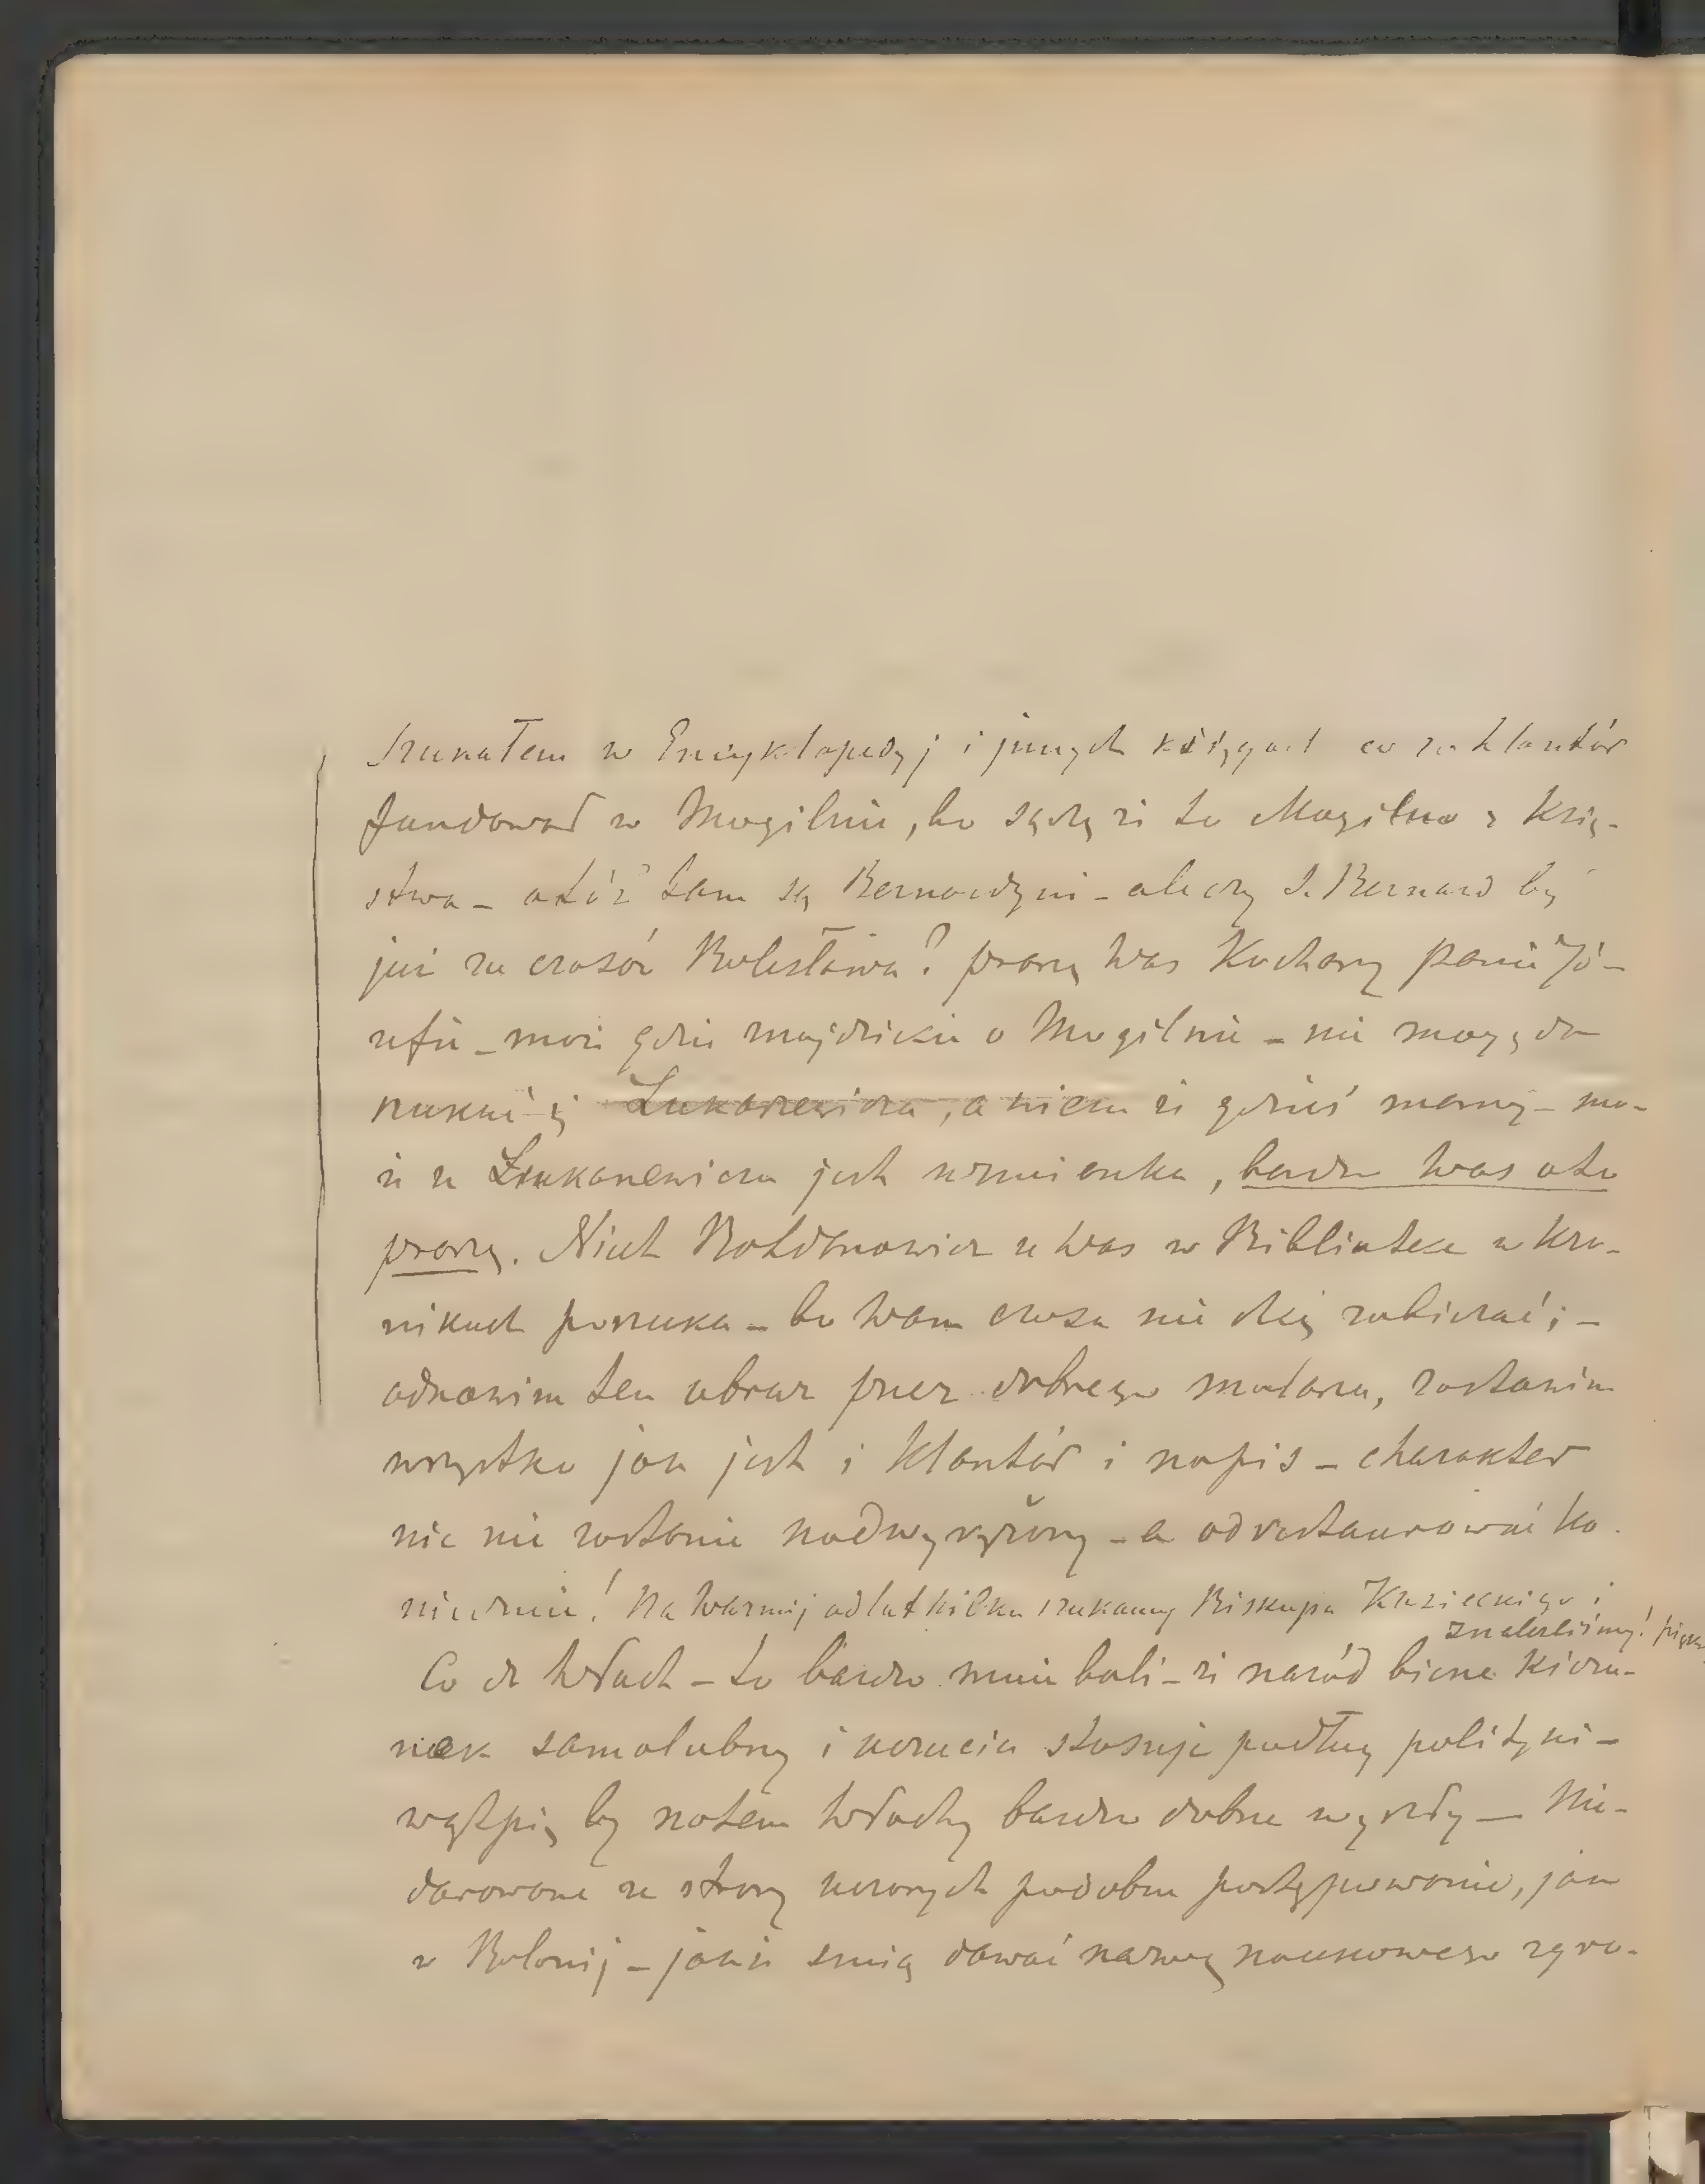 Szukałem w Encyklopedyj i jnnych księgach co za klasztór
fundował w Mogilnie, bo sądzę że to Mogilno z Księ-
stwa – otóż tam są Bernardyni – ale czy S. Bernard był
już za czasów Bolesława? proszę Was Kochany panie Jó-
zefie – może gdzie znajdziecie o Mogilnie – nie mogę do
szukać ę Łukaszewicza, a wiem że gdzieś mamy – mo-
że u Łukaszewicza jest wzmianka, bardzo Was o to
proszę. Niech Bohdanowicz u Was w Bibliotece w kro-
nikach poszuka – bo Wam czasu nie chcę zabierać; –
odnowim ten obraz przez dobrego malarza, zostawim
wszystko jak jest i klasztór i napis – charakter
nic nie zostanie nadwyrężony – a odrestaurować ko-
niecznie! Na Warmij od lat kilku szukamy Biskupa Krasickiego i
znaleźliśmy!
Co do Włoch – to bardzo mnie boli – że naród bierze kieru-
nek samolubny i uczucia stosuje podług polityki –
wątpię by na tem Włochy bardzo dobrze wyszły — Nie-
darowane ze strony uczonych podobne postępowanie, jak
w Bolonij – jakże śmią dawać nazwę naukowego zgro-